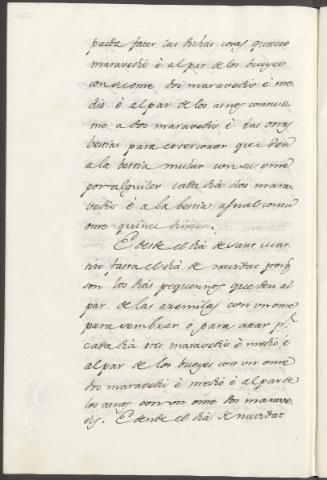 pueda facer las dichas cosas quatro
maravedis è al par de los bueyes
con su ome dos maravedis è me-
dio è al par de los asnos con su o-
me à dos maravedis è las otras
bestias para
que den
a la bestia mular con su ome
por alquiler cada dia dos mara
vedis è a la bestia asnal con su
ome quince dineros.
E desde el dia de Sant Mar-
tin fasta el dia de navidat porq.
son los dias pequennos que den al
par de las azemilas con un ome
para sembrar ò para arar
cada dia tres maravedis è medio è
al par de los bueyes con un ome
dos maravedis è medio è al par de
los asnos con un ome dos marave-
dis. E dende el dia de navidat